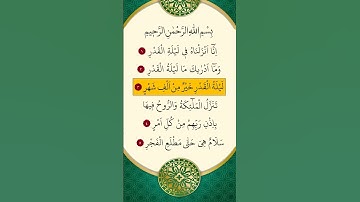 بِسْمِ اللّٰهِ الرَّحْمٰنِ الرَّحِيمِ
اِنَّٓا اَنْزَلْنَاهُ فِى لَيْلَةِ الْقَدْرِ ١
وَمَٓا اَدْرٰيكَ مَا لَيْلَةُ الْقَدْرِ ٢
لَيْلَةُ الْقَدْرِ خَيْرٌ مِنْ اَلْفِ شَهْرٍ ٣
تَنَزَّلُ الْمَلٰٓئِكَةُ وَالرُّوحُ فِيهَا
بِاِذْنِ رَبِّهِمْ مِنْ كُلِّ اَمْرٍ ٤
سَلَامٌ هِىَ حَتّٰى مَطْلَعِ الْفَجْرِ ٥